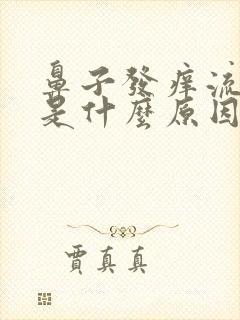 鼻子發癢流
是什麼原因
賈真真